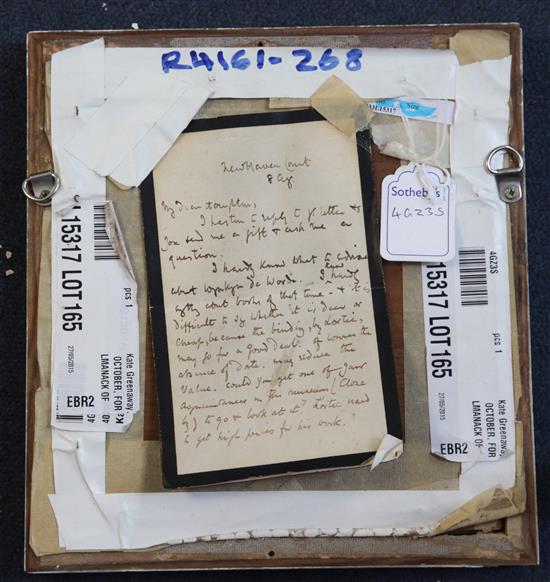 R4161-268
Size
L15317
Sotheby's
4GZ3S
15317 LOT 165
pcs 1
27/05/2015
Kate Greenaway,
OCTOBER. FOR
LMANACK OF
EBR2
4GZ3S
15317 LOT 165
pcs 1
27/05/2015
Kate Greenaway,
OCTOBER. FOR
LMANACK OF
EBR2
Newhaven Court
8
My Dear
I hasten to reply to yr letter &
you send me a gift & ask me a
question.
I hardly know what to advise
about Wynkyn de Worde. I hardly know
about books of that time - & it is
difficult to say whether it is dear or
cheap, because the binding, by Lortic,
may go for a Good Deal. Of course the
absence of date may reduce the
value. Could you get one of your
acquaintances in the museum (Close
by) to go & look at it? Lortic used
to get high prices for his work.